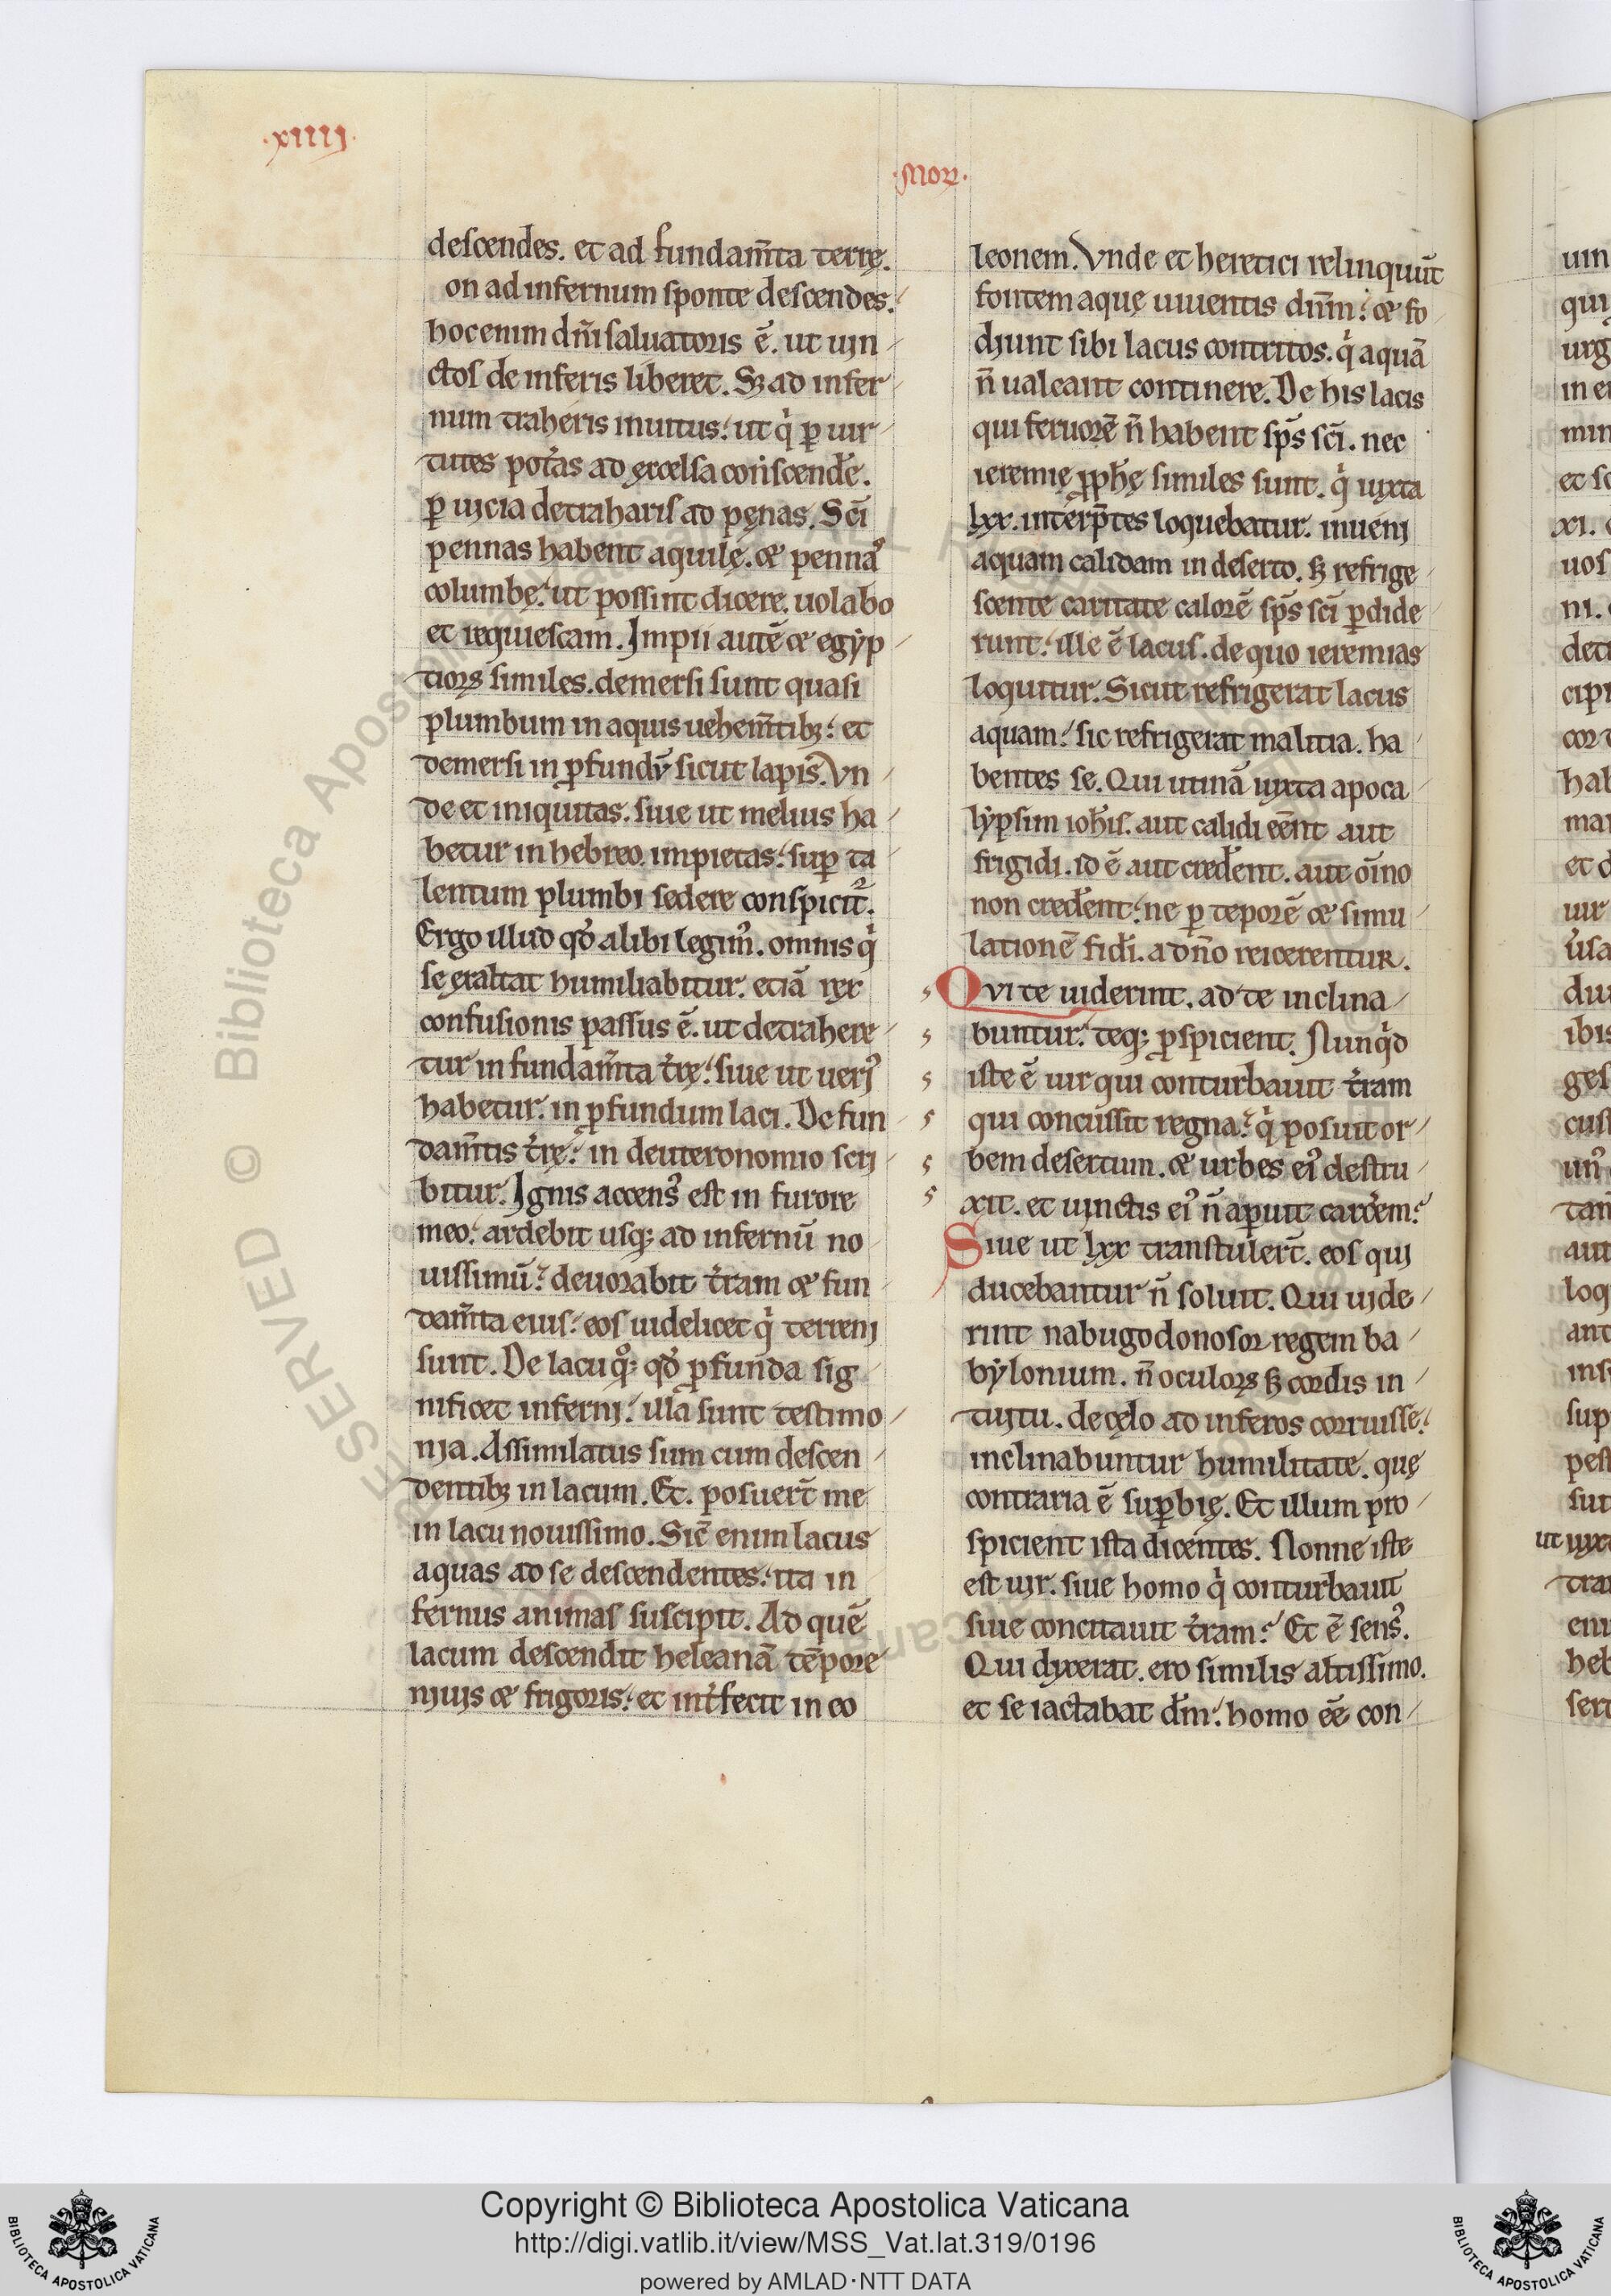 ·xiiij·
·Mor·
descendes. et ad fundam̄ta terrę.
on ad infernum sponte descendes.
hoc enim dn̄i saluatoris ē. ut uin
ctos de inferis liberet. Sꝫ ad infer
num traheris inuitus. ut q̇ ꝑ uir
tutes pot̾as ad excelsa conscendē.
ꝑ uicia detraharis ad pęnas. Sc̄i
pennas habent aquilę. & penna᷒
columbę. ut possint dicere. uolabo
et requiescam. Impii autē & egẏp
tioꝝ similes. demersi sunt quasi
plumbum in aquis uehem̄tibꝫ. et
demersi in ꝓfundū sicut lapis. Vn
de et iniquitas. siue ut melius ha
betur in hebreo. impietas. suꝑ ta
lentum plumbi sedere conspicit᷑.
Ergo illud qđ alibi legim᷒. omnis q̇
se exaltat humiliabitur. etiā rex
confusionis passus ē. ut detrahere
tur in fundam̄ta t̾rę. siue ut ueri᷒
habetur. in ꝓfundum laci. De fun
dam̄tis t̾rę. in deuteronomio scri
bitur. Ignis accens᷒ est in furore
meo. ardebit usqꝫ ad infernū no
uissimū. deuorabit t̾ram & fun
dam̄ta eius. eos uidelicet q̇ terreni
sunt. De lacu qͦꝫ qđ ꝓfunda sig
nificet inferni. illa sunt testimo
nia. Assimilatus sum cum descen
dentibꝫ in lacum. Et. posuer̄t me
in lacu nouissimo. Sic̄ enim lacus
aquas ad se descendentes. ita in
fernus animas suscipit. Ad quē
lacum descendit heleanā tēpore
niuis & frigoris. et int̾fecit in eo
leonem. Vnde et heretici relinquūt
fontem aquę uiuentis dn̄m. & fo
diunt sibi lacus contritos. q̇ aquā
n̄ ualeant continere. De his lacis
qui feruorē n̄ habent sp̄s sc̄i. nec
ieremię ꝓph̄ę similes sunt. q̇ iuxta
lxx. interp̄tes loquebatur. inueni
aquam calidam in deserto. sꝫ refrige
scente caritate calorē sp̄s sc̄i ꝑdide
runt. ille ē lacus. de quo ieremias
loquitur. Sicut refrigerat lacus
aquam. sic refrigerat malitia. ha
bentes se. Qui utinā iuxta apoca
lẏpsim ioh̄is. aut calidi eēnt aut
frigidi. id ē aut cred̄ent. aut oīno
non cred̄ent. ne ꝑ teporē & simu
lationē fid̄i. a dn̄o reicerentur.
Qvi te uiderint. ad te inclina
buntur. teqꝫ ꝓspicient. Nunqͥd
iste ē uir qui conturbauit t̾ram
qui concussit regna. q̇ posuit or
bem desertum. & urbes ei᷒ destru
xit. et uinctis ei᷒ n̄ aperuit carcēm.
Siue ut lxx transtuler̄t. eos qui
ducebantur n̄ soluit. Qui uide
rint nabugodonosor regem ba
bẏlonium. n̄ oculoꝝ sꝫ cordis in
tuitu. de cęlo ad inferos corruisse.
inclinabuntur humilitate. quę
contraria ē suꝑbię. Et illum pro
spicient ista dicentes. Nonne iste
est uir. siue homo q̇ conturbauit
siue concitauit t̾ram. Et ē sens᷒.
Qui dixerat. ero similis altissimo.
et se iactabat dm̄. homo eē con
Copyright © Biblioteca Apostolica Vaticana
http://digi.vatlib.it/view/MSS_Vat.lat.319/0196
powered by AMLAD·NTT DATA